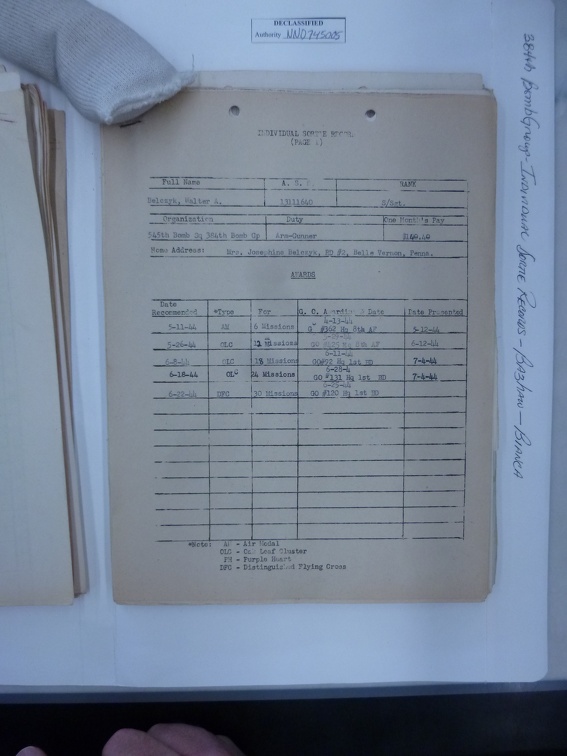 DECLASSIFIED
Authority NND745005
384th Bomb Group - Individual Sortie Records - Bazhaw - Bianca
INDIVIDUAL SORTIE RECORD
(PAGE 1)
Full Name A. S. N. RANK
Belczyk, Walter A. 13111640 S/Sgt.
Organization Duty One Month's Pay
545th Bomb Sq 384th Bomb Gp Arm-Gunner
Home Address: Mrs. Josephine Belczyk, RD #2, Belle Vernon, Penna.
AWARDS
Date
Recommended *Type For G. O. Awarding & Date Date Presented
4-13-44
AM 6 Missions #302 Hq 8th AF 5-12-44
5-26-44 OLC 12 Missions 8th AF 6-12-44
6-11-44
6-8-44 OLC 18 Missions GO#92 Hq 1st BD 7-4-44
6-28-4
6-18-44 OLC 24 Missions GO #131 Hq 1st BD 7-4-44
6-25-44
6-22-44 DFC 30 Missions GO #120 Hq 1st BD
*Note: AM - Air Medal
OLC - Oak Leaf Cluster
PH - Purple Heart
DFC - Distinguished Flying Cross